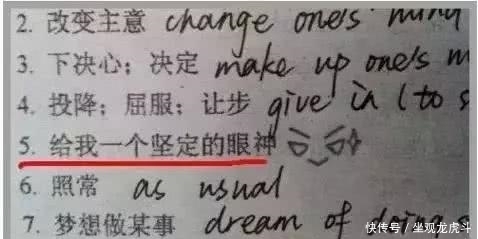 2. 改变主意 change one's mind
3. 下决心；决定 make up one's m
4. 投降；屈服；让步 give in (to s
5. 给我一个坚定的眼神
6. 照常 as usual
7. 梦想做某事 dream of doing s
快传号／坐观龙虎斗